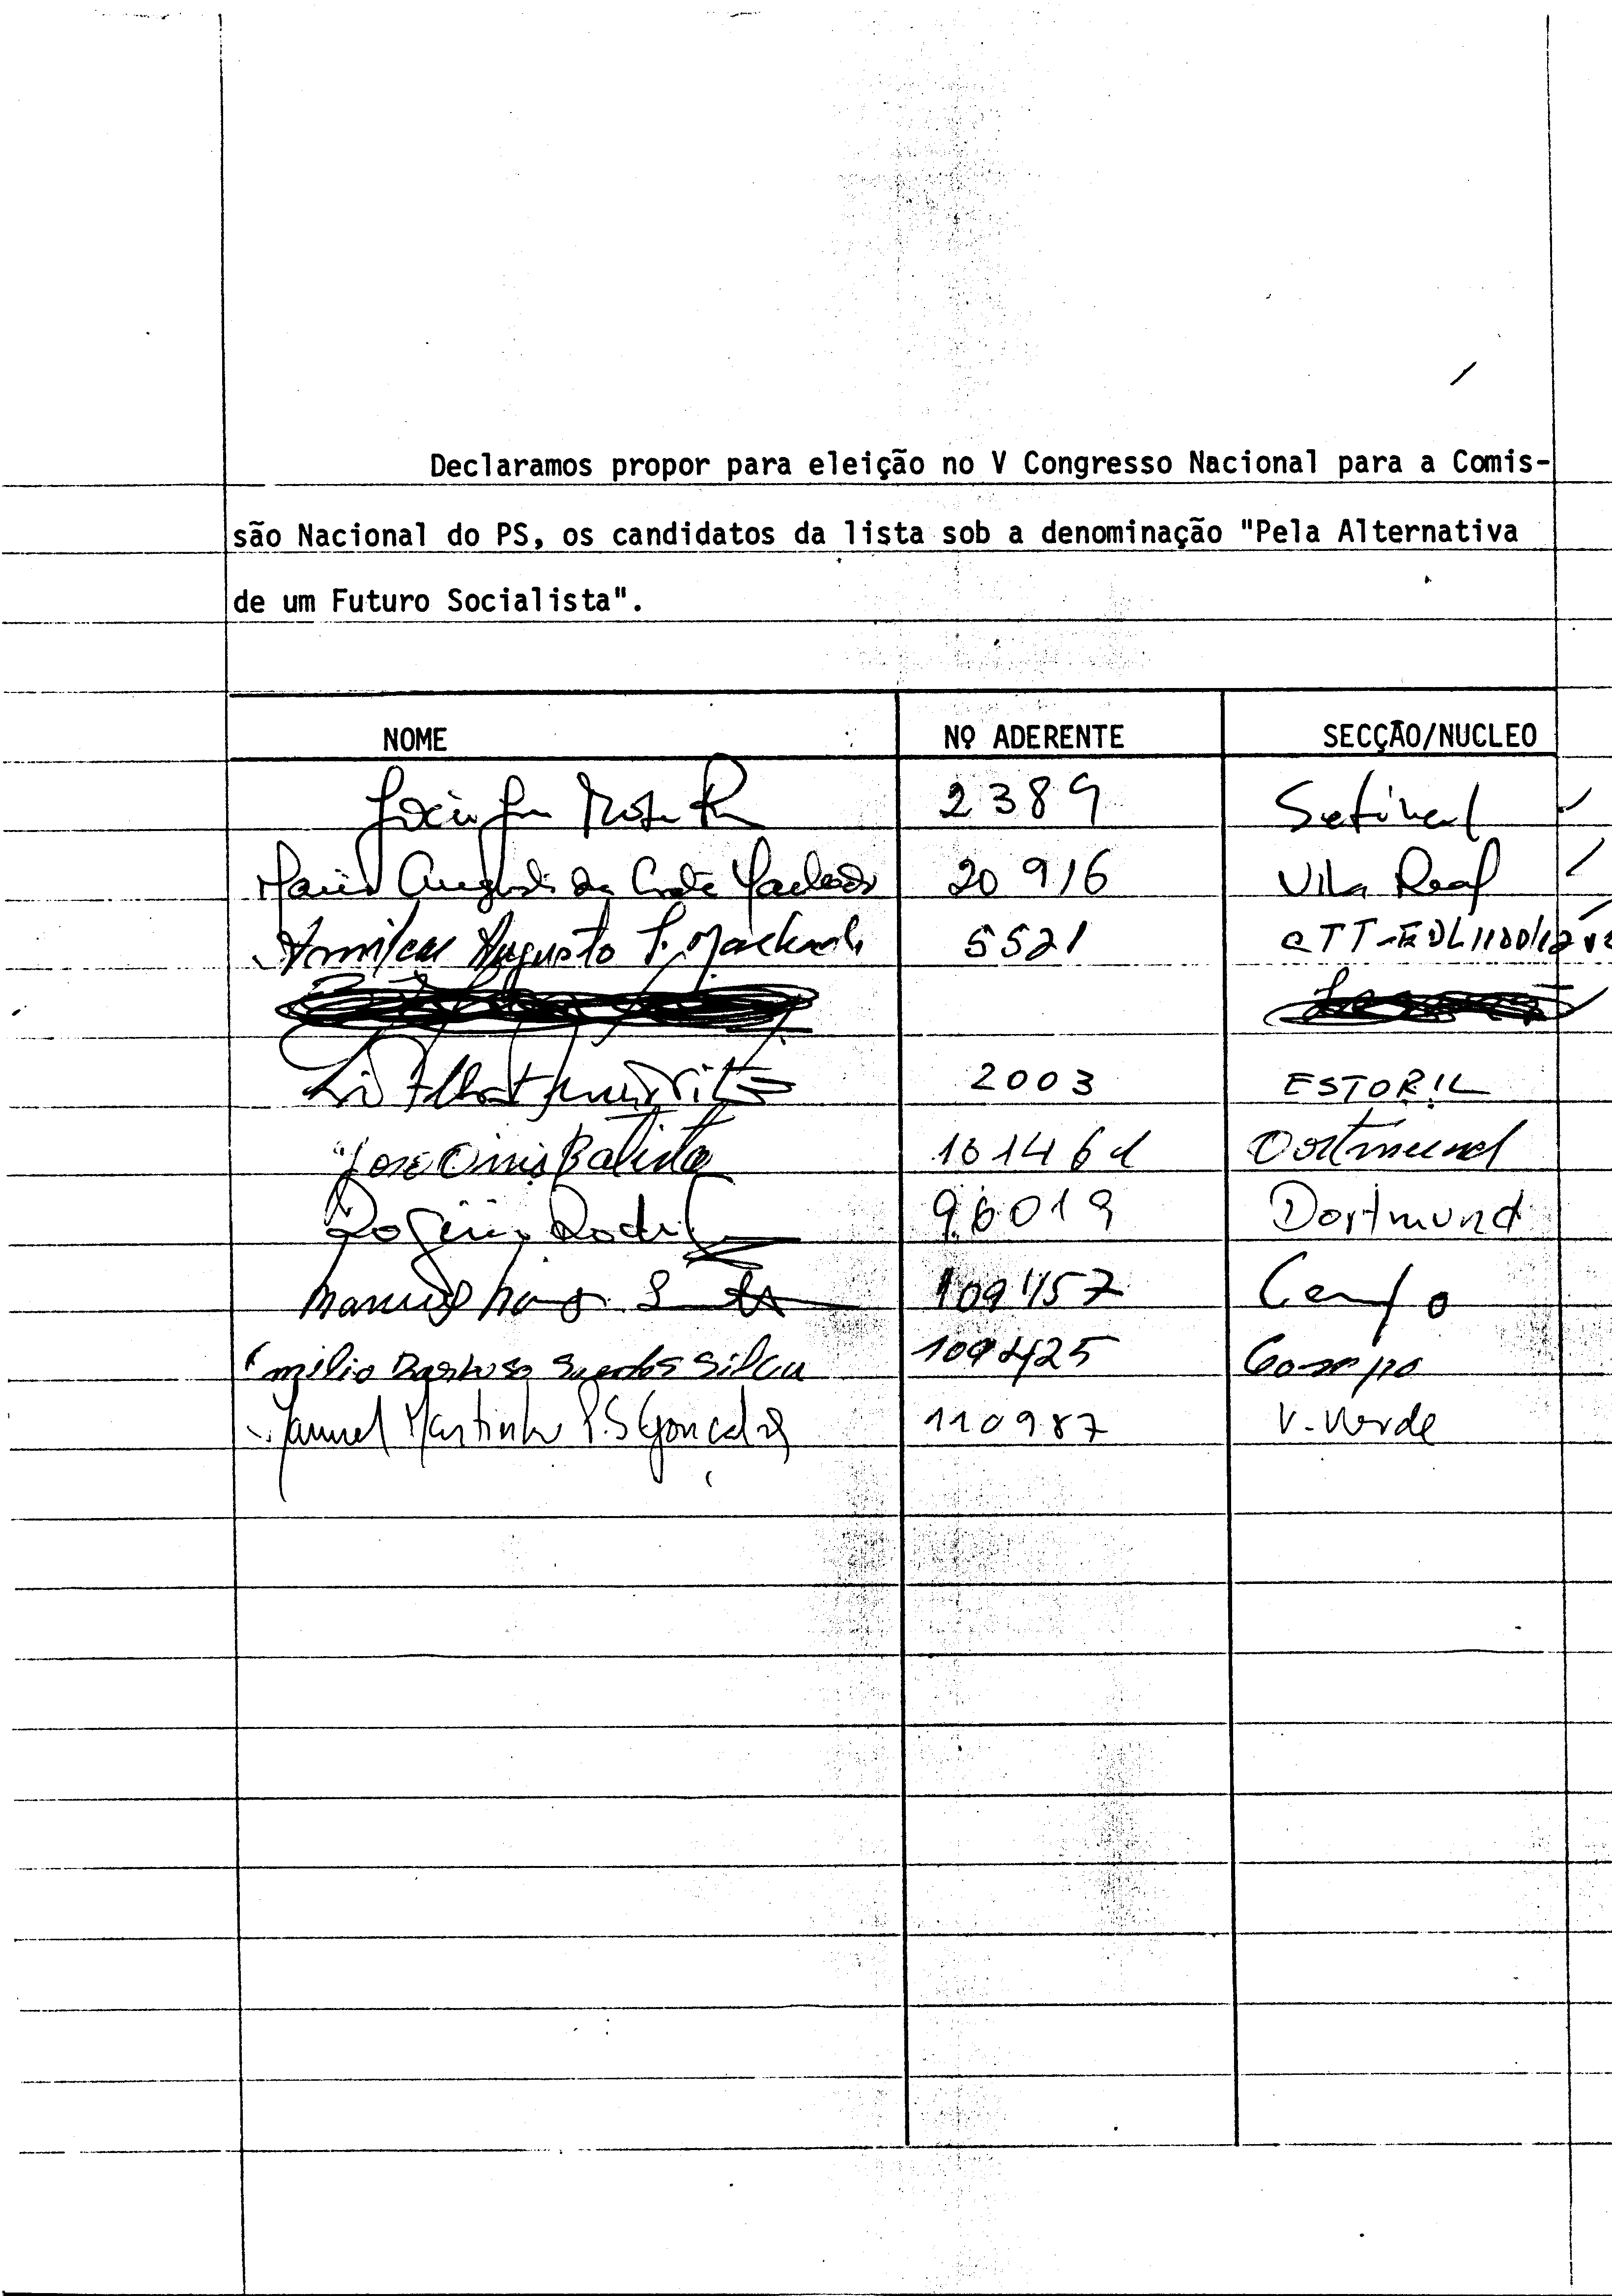 Declaramos propor para eleição no V Congresso Nacional para a Comis-
são Nacional do PS, os candidatos da lista sob a denominação "Pela Alternativa
de um Futuro Socialista".
NOME Nº ADERENTE SECÇÃO/NUCLEO
2389 Setúbal
Augusto da Costa Machado 20916 Vila Real
Amilcar Augusto P. Machado 5521
2003 ESTORIL
José Dinis Batista 10146 Dortmund
Rogério 96019 Dortmund
Manuel 109457 Campo
Emilio Barbosa Santos Silva Campo
Manuel Martinho P.S Gonçalves 110987 V. Verde